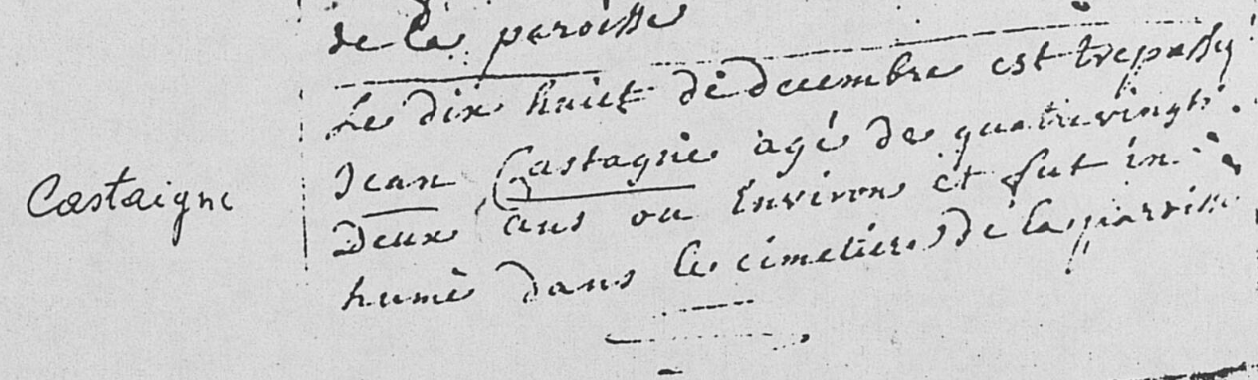 de la paroisse
Le dix huict de decembre est trepassé
Jean Castagnie agé de quatrevingts
Castaigne
Deux ans ou Environ et fut in
humé dans le cimetiere de la paroisse